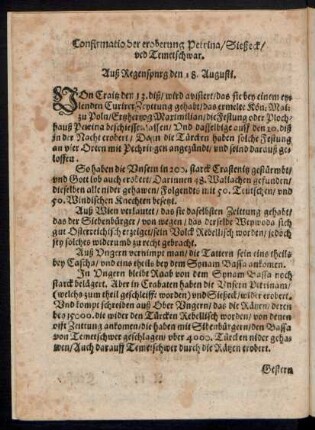 Confirmatio der eroberung Petrina/ Sißeck/
vnd Temetschwar.
Auß Regenspurg den 18. Augusti.
VOn Crain den 13. diß/ wird avisiert/ das sie bey einem ey-
lenden Currier Zeyttung gehabt/ das ermelte Kön. May.
zu Poln/ Ertzhertzog Maximilian/ die Festung oder Bloch-
hauß Petrina beschiessen lassen/ Vnd dasselbige auff den 10. diß
in der Nacht erobert/ Dañ die Türcken haben solche Festung
an vier Orten mit Pechringen angezündt/ vnd seind darauß ge-
loffen.
So haben die Vnsern in 200. starck Crastowitz gestürmbt/
vnd Gott lob auch erobert/ Darinnen 48. Wallachen gefunden/
dieselben alle nider gehawen/ Folgendts mit 50. Teutschen/ vnd
50. Windischen Knechten besetzt.
Auß Wien verlautet/ das sie daselbsten Zeittung gehabt/
das der Siebenbürger/ von wegen/ das derselbe Weywoda sich
gut Osterreichisch erzeiget/ sein Volck Rebellisch worden/ jedoch
sey solches widerumb zu recht gebracht.
Auß Vngern vernimpt man/ die Tattern sein eins theils
bey Cascha/ vnd eins theils bey dem Synam Bassa ankomen.
In Vngern bleibt Raab von dem Synam Bassa noch
starck belägert. Aber in Crabaten haben die Vnsern Petrinam/
(welchs zum theil geschleifft worden) vnd Sißeck/ wider erobert.
Vnd kompt schreiben auß Ober Vngern/ das die Rätzen/ deren
bey 15000. die wider den Türcken Rebellisch worden/ von denen
offt Zeittung ankomen/ die haben mit Sibenbürgern/ den Bassa
von Temetschwer geschlagen/ vber 4000. Türcken nider geha-
wen/ Auch darauff Temetschwer durch die Rätzen erobert.
Gestern